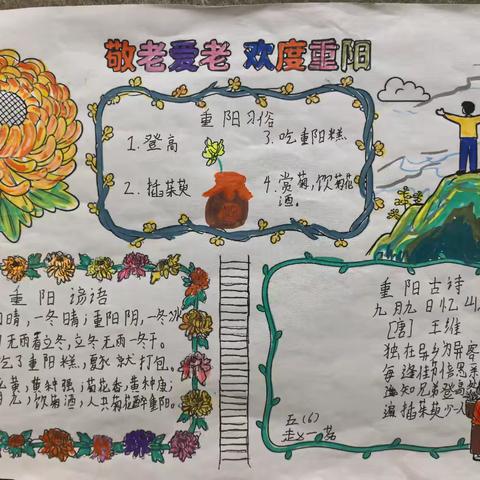 敬老爱老 欢度重阳
重阳习俗
1.登高
3.吃重阳糕
2.插茱萸
4.赏菊,饮菊花
酒。
重阳谚语
日晴,一冬晴;重阳阴,一冬冰
无雨看立冬,立冬无雨一冬干。
吃了重阳糕,夏衣就打包。
黄菊香,黄
,饮菊酒,人共菊花醉重阳。
重阳古诗
九月九日忆山
[唐] 王维
独在异乡为异客
每逢佳节倍思亲
遥知兄弟登高
遍插茱萸少人
五(6)
赵一